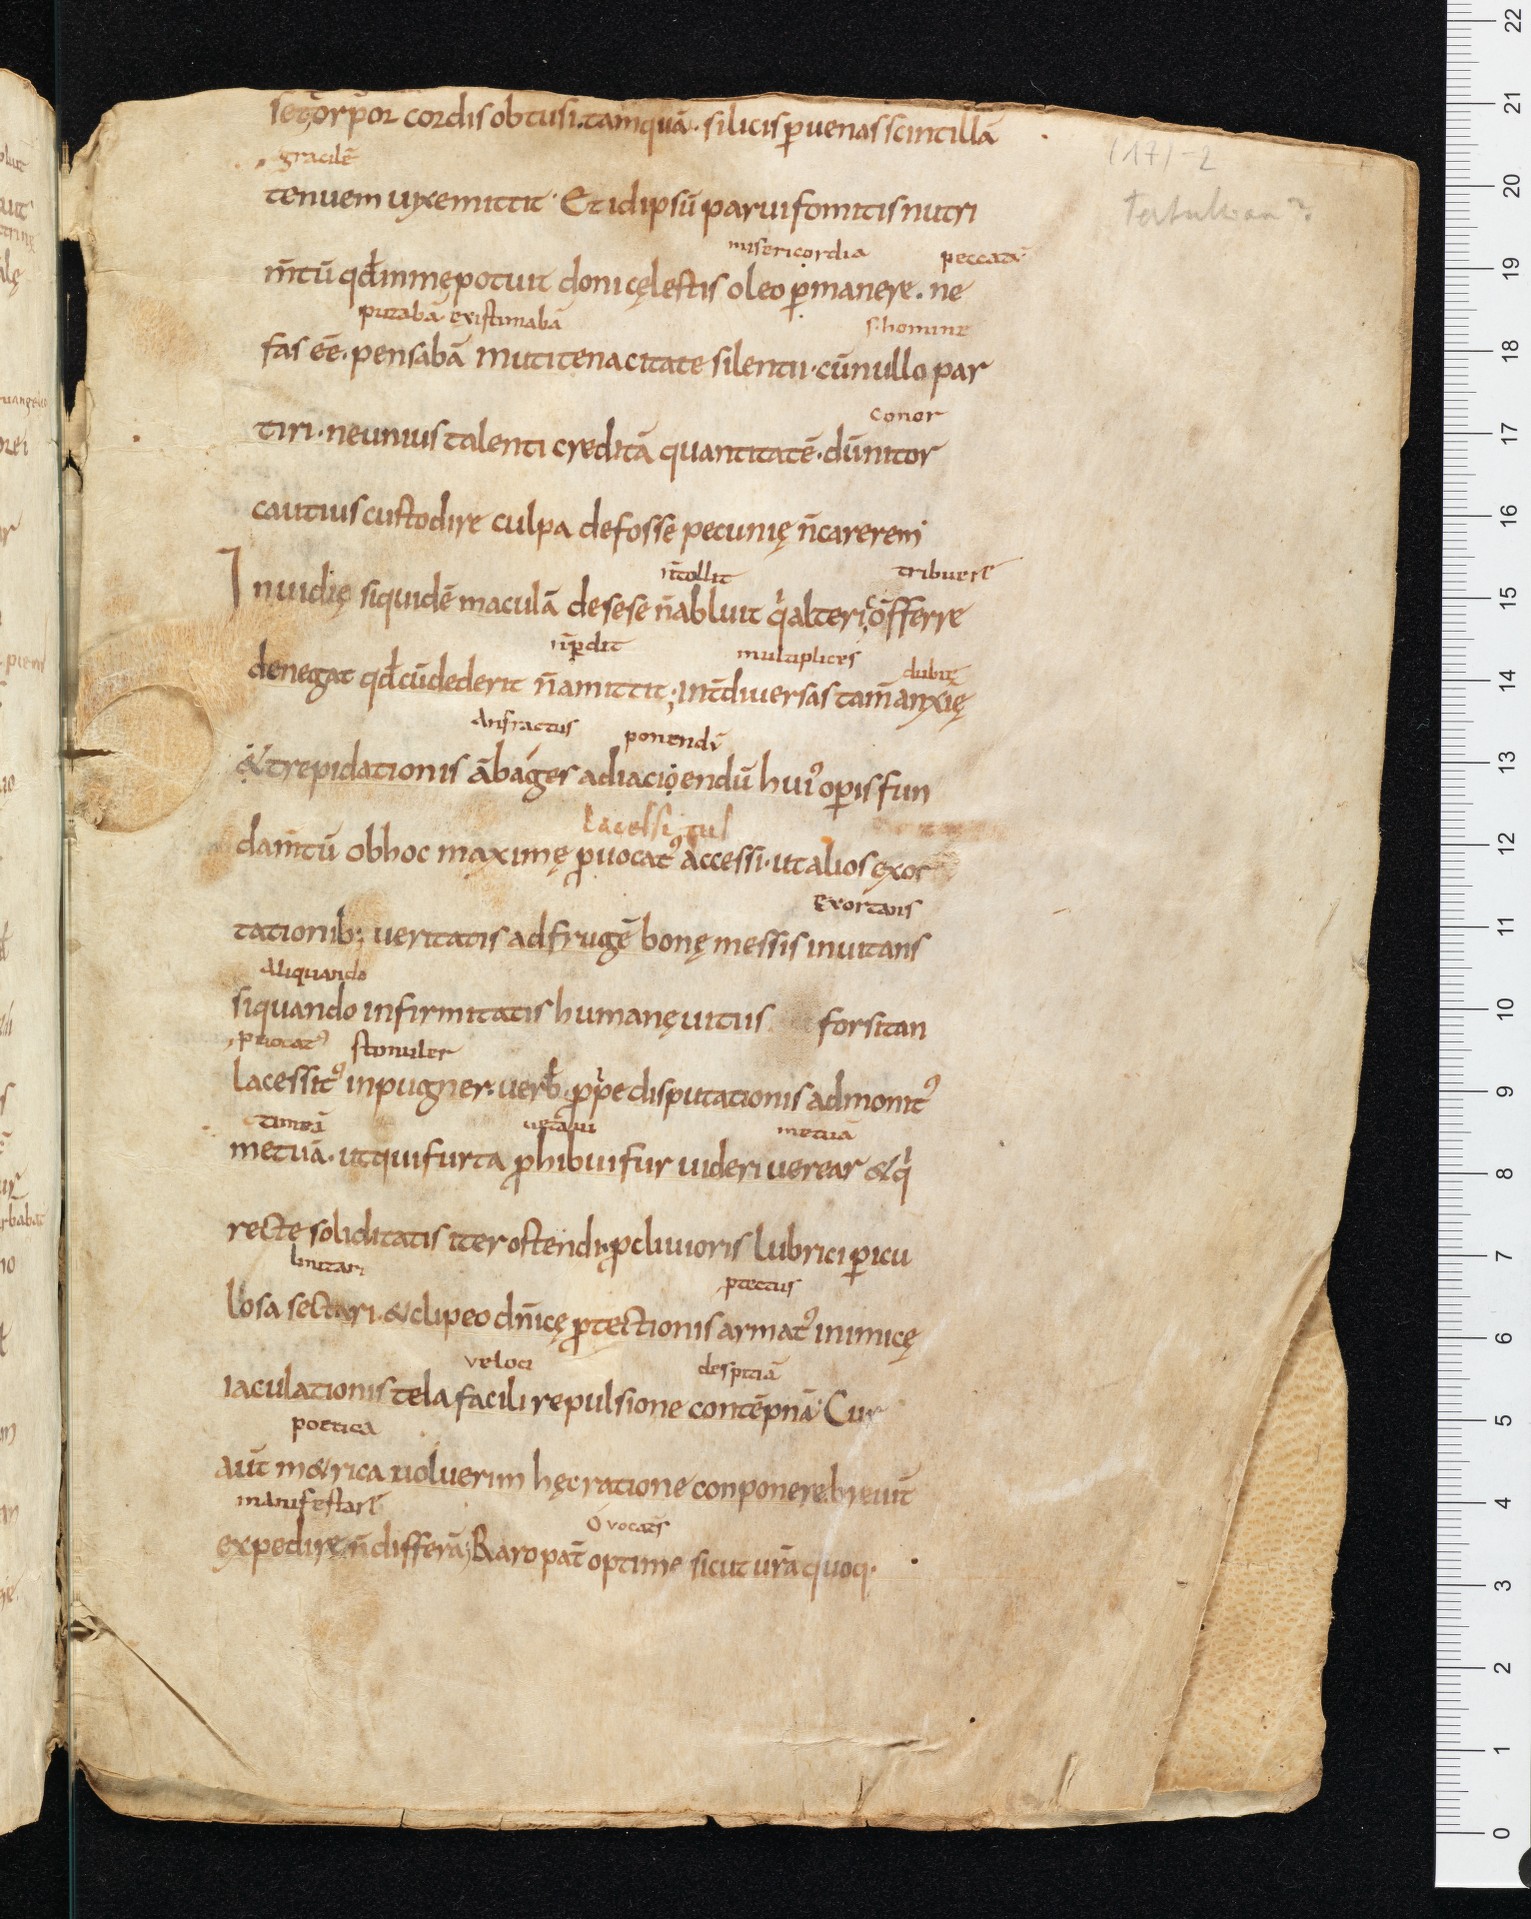 set torpor cordis obtusi. tamquā. silicis p̱ uenas scintillā
gracilē
tenuem uyxemittit. Et id ipsū parui fomitis nutri
misericordia peccatā
m̄tū qđ in mę potuit doni cęlestis oleo p̱manere. ne
putabā existimabā s. homine
fas eē. pensabā muti tenacitate silentii. cū nullo par
conor
tiri. ne unius talenti creditā quantitatē. dū nitor
cautius custodire culpa defosse pecunię n̄ carerem
n̄ tollit tribuere
Inuidię siquidē maculā de sese n̄ abluit qi alteri offerre
n̄ p̱dit multiplices dubitę
denegat qđ cū dederit n̄ amittit; int̄ diuersas tam̄ anxię
Anfractus ponendū
& trepidationis ābages ad iaciendū hui᾿ op̱is fun
Lacessitul
dam̄tū ob hoc maximę p̱uocat᾿ accessi. ut alios exor
Exortans
tationib; ueritatis ad frugē bonę messis inuitans
Aliquando
siquando infirmitatis humanę uitiis forsitan
puocat᾿ stimuler
lacessit᾿ inpugner. uerb̄ p̱p̱e disputationis admonit᾿
timeā uetaui metuā
metuā. ut qui furta p̱hibui fur uideri uerear & qi
recte soliditatis iter ostendi p̱cliuioris lubrici p̱icu
Imitari ptectus
losa sectari. & clipeo dn̄icę p̱tectionis armat᾿ inimicę
veloci despitiā
iaculationis tela facili repulsione contēpnā. Cur
poetica
aut̄ m&rica uoluerim hęc ratione conponere breuit̄
manifestare
expedire n̄ differā; Raro pat̄ optime sicut ur̄a quoq.
O vocats
(17)-2